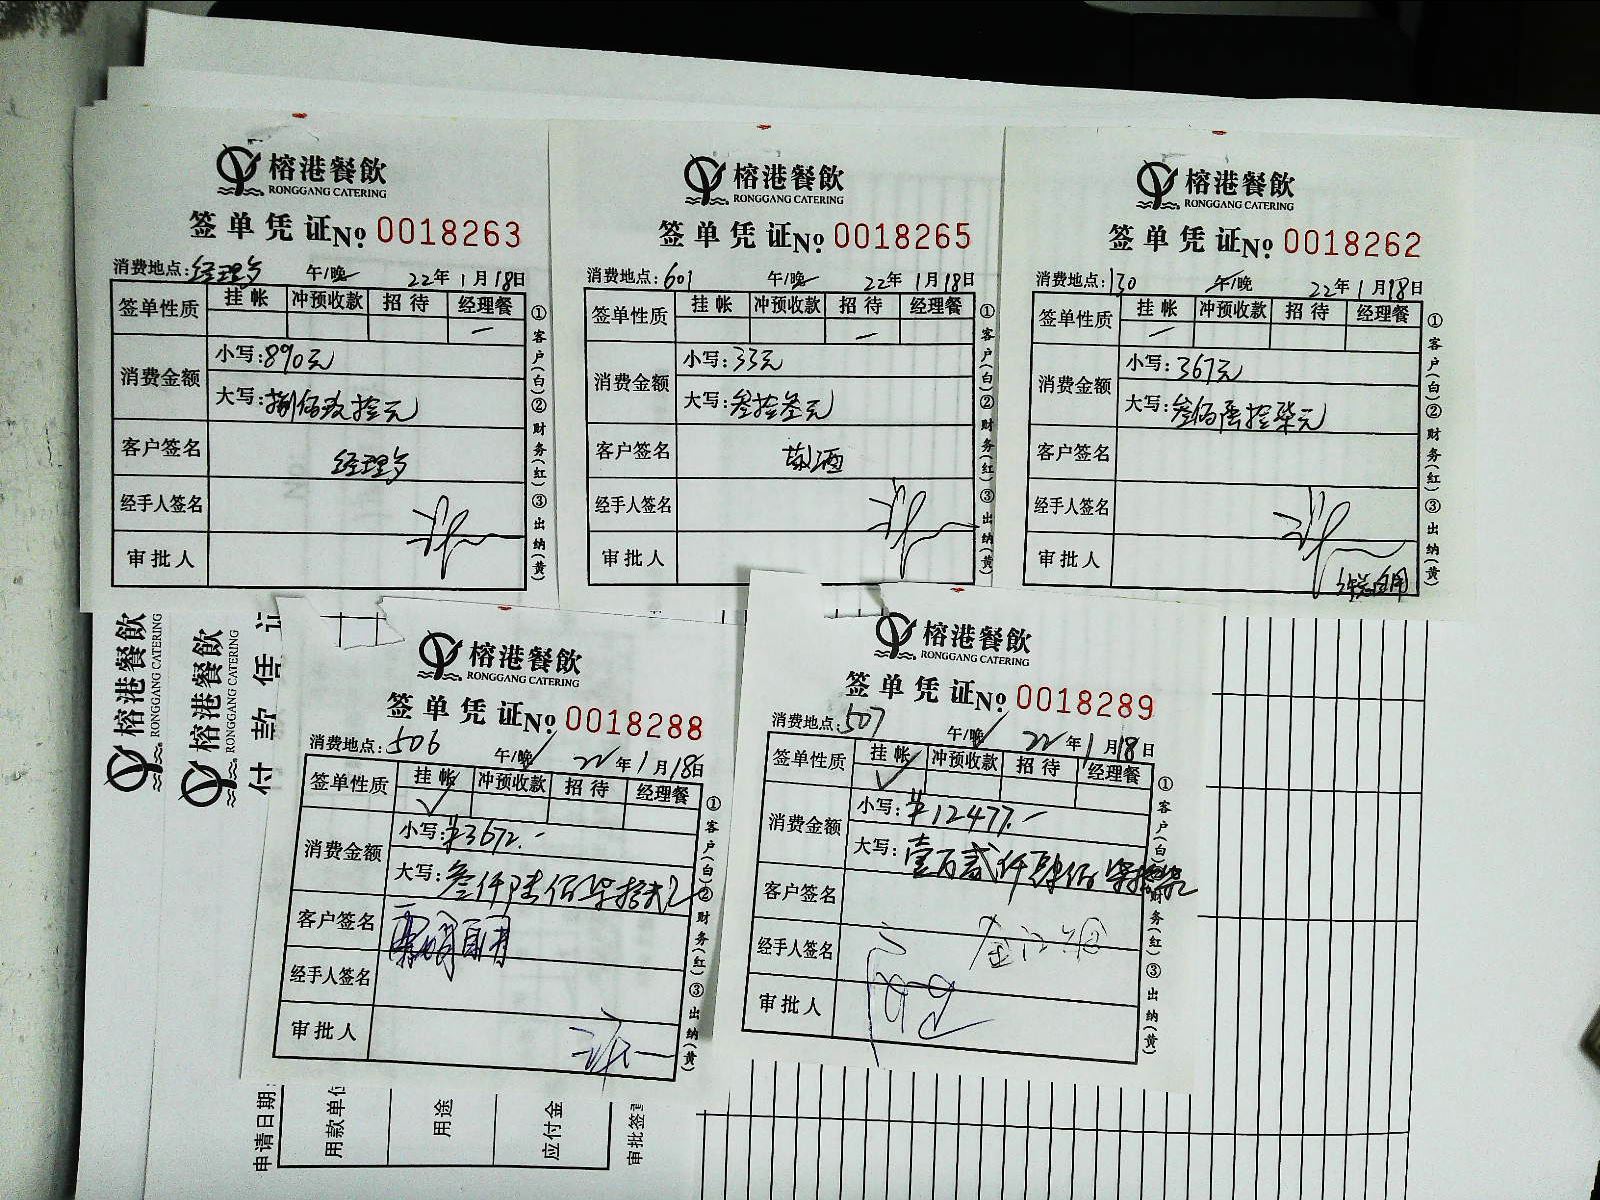 榕港餐飲
RONGGANG CATERING
签单凭证No. 0018263
消费地点:经理餐 午/晚 22年1月18日
签单性质 挂帐 冲预收款 招待 经理餐
消费金额 小写:890元
大写:捌佰玖拾元
客户签名 经理餐
经手人签名
审批人
①客户(白)②财务(红)③出纳(黄)
榕港餐飲
RONGGANG CATERING
签单凭证No. 0018265
消费地点:601 午/晚 22年1月18日
签单性质 挂帐 冲预收款 招待 经理餐
消费金额 小写:33元
大写:叁拾叁元
客户签名 敬酒
经手人签名
审批人
①客户(白)②财务(红)③出纳(黄)
榕港餐飲
RONGGANG CATERING
签单凭证No. 0018262
消费地点:130 午/晚 22年1月18日
签单性质 挂帐 冲预收款 招待 经理餐
消费金额 小写:367元
大写:叁佰陆拾柒元
客户签名
经手人签名
审批人
①客户(白)②财务(红)③出纳(黄)
榕港餐飲
RONGGANG CATERING
签单凭证No. 0018288
消费地点:506 午/晚 22年1月18日
签单性质 挂帐 冲预收款 招待 经理餐
消费金额 小写:¥3672.-
大写:叁仟陆佰柒拾贰元
客户签名
经手人签名
审批人
①客户(白)②财务(红)③出纳(黄)
榕港餐飲
RONGGANG CATERING
签单凭证No. 0018289
消费地点:507 午/晚 22年1月18日
签单性质 挂帐 冲预收款 招待 经理餐
消费金额 小写:¥12477.-
大写:壹万贰仟肆佰柒拾柒元
客户签名
经手人签名
审批人
①客户(白)②财务(红)③出纳(黄)
榕港餐飲
RONGGANG CATERING
榕港餐飲
RONGGANG CATERING
付款凭证
申请日期:
用款单位
用途
应付金
审批签章